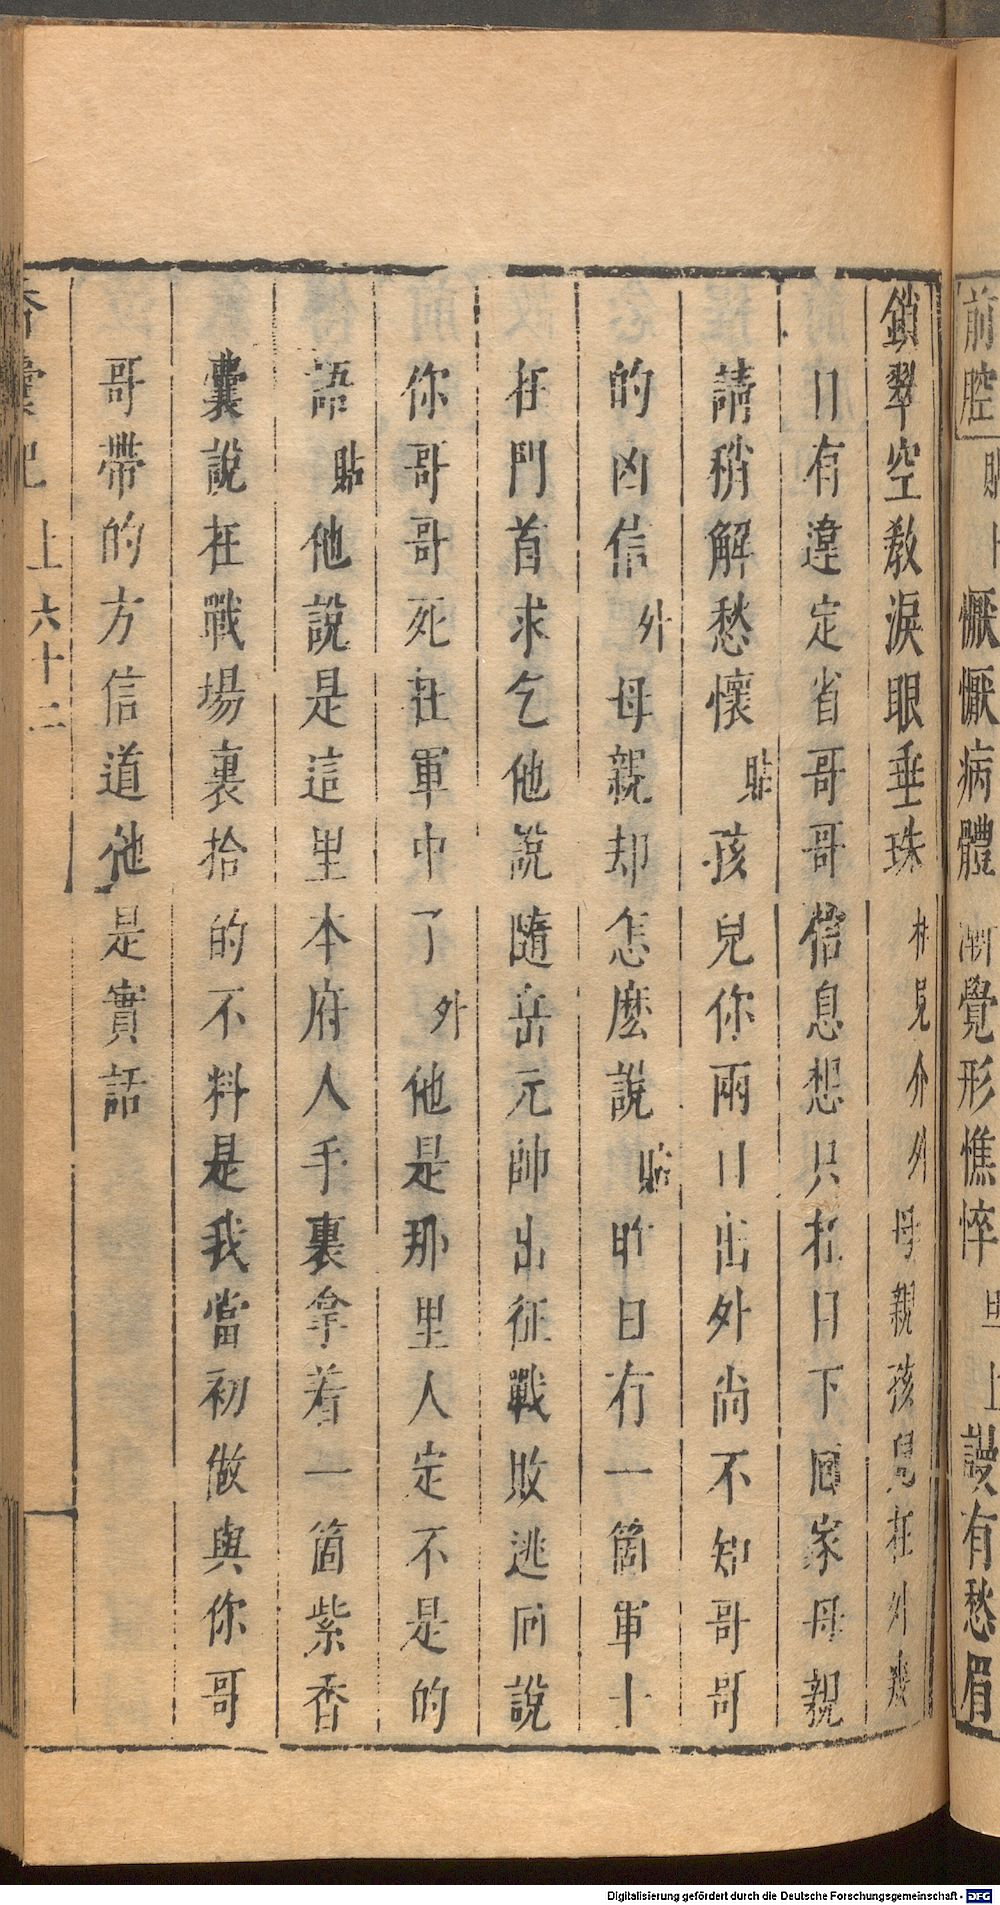 前腔 貼上 懨懨病體 漸覺形憔悴 旦上 謾有愁眉
鎖翠空教淚眼垂珠 相見介 外 母親孩兒在外幾
日有違定省哥哥信息想只在日下回家母親
請稍解愁懷 貼 孩兒你兩日出外尚不知哥哥
的凶信 外 母親却怎麽說 貼 昨日有一箇軍士
在門首求乞他說隨岳元帥出征戰敗逃回說
你哥哥死在軍中了 外 他是那里人定不是的
語 貼 他說是這里本府人手裏拿着一箇紫香
囊說在戰塲裏拾的不料是我當初做與你哥
哥帶的方信道他是實話
香囊記 上 六十二
Digitalisierung gefördert durch die Deutsche Forschungsgemeinschaft - DFG